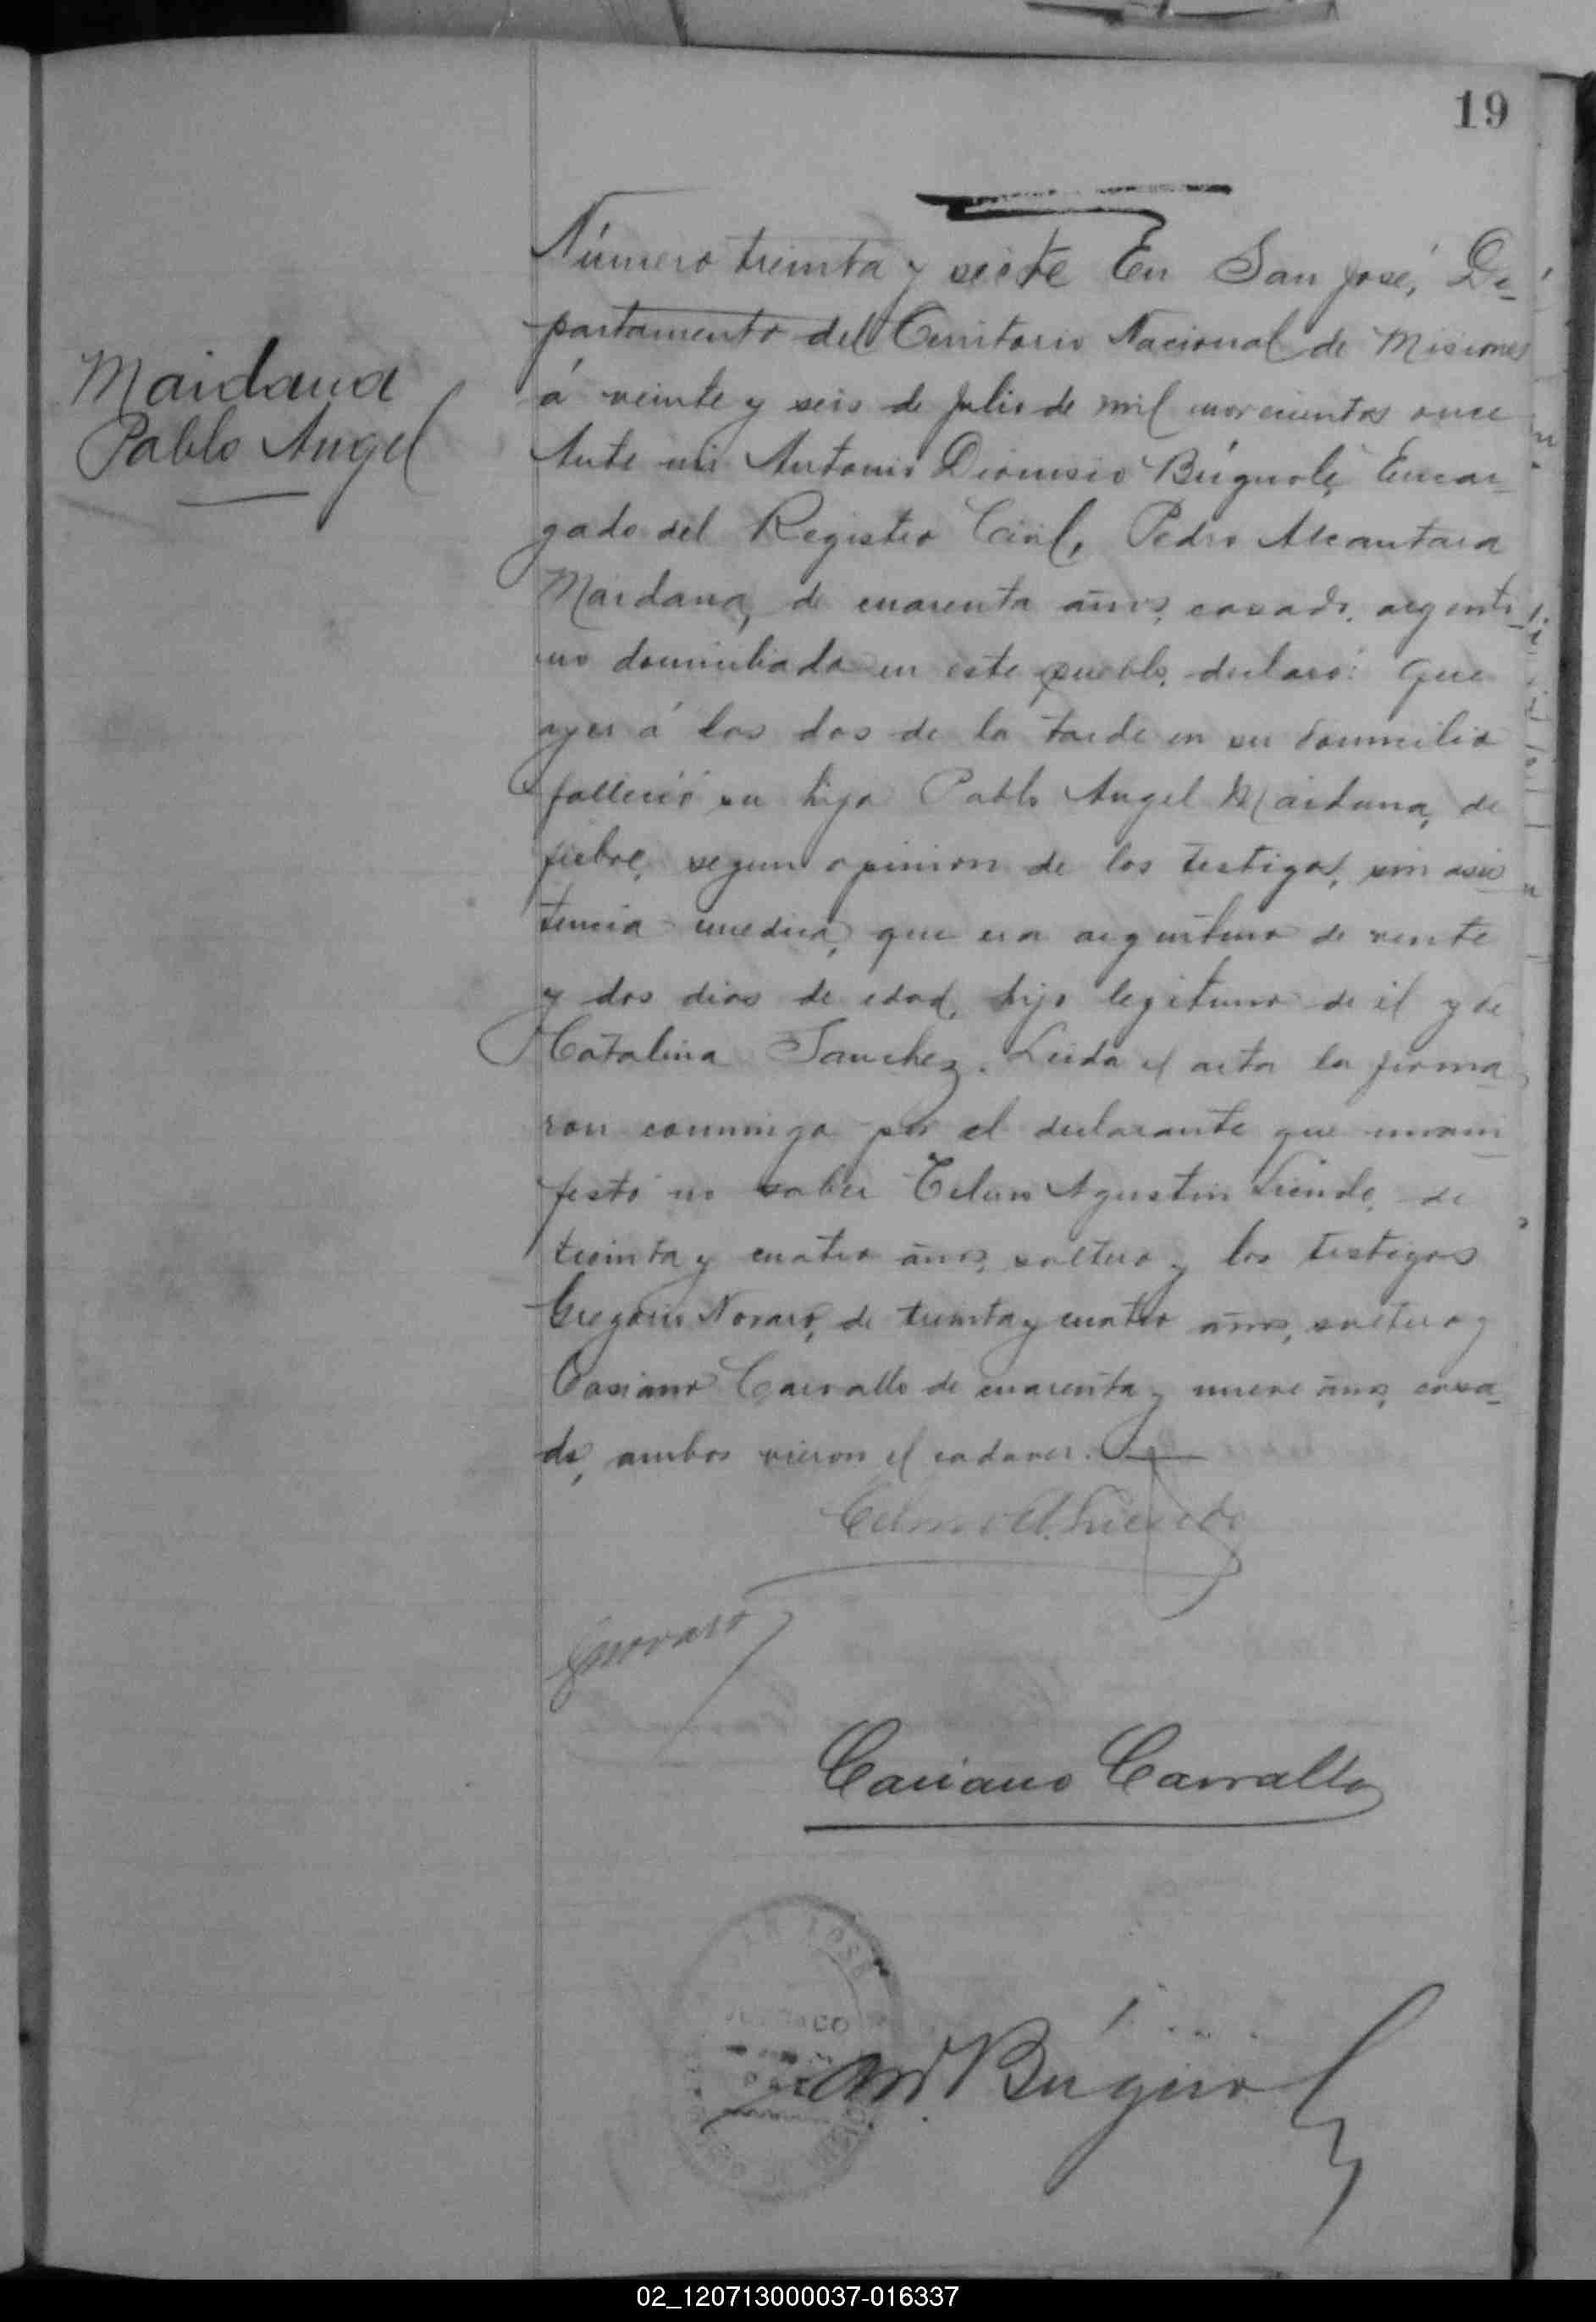 19
Maidana
Pablo Angel
Número treinta y siete En San José, De-
partamento del Territorio Nacional de Misiones
á veinte y seis de Julio de mil novecientos once
Ante mi Antonio Dionisio Búgnolé, Encar-
gado del Registro Civil, Pedro Alcantara
Maidana, de cuarenta años, casado, argenti-
no domiciliado en este pueblo, declaró: Que
ayer á las dos de la tarde en su domicilio
falleció su hijo Pablo Angel Maidana, de
fiebre, segun opinion de los testigos, sin asis-
tencia medica, que era argentino de veinte
y dos dias de edad, hijo legitimo de él y de
Catalina Sanchez. Leida el acta la firma-
ron conmigo por el declarante que mani-
festó no saber Telmo Agustin Liendo, de
treinta y cuatro años, soltero y los testigos
Gregorio Novaro, de treinta y cuatro años, soltero y
Casiano Carvallo de cuarenta y nueve años, casa-
do, ambos vieron el cadaver.
Telmo A. Liendo
GNovaro
Casiano Carvallo
SAN JOSÉ
Ant. D. Búgnol
02_120713000037-016337